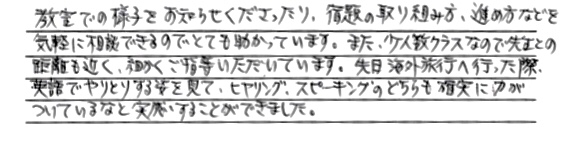 教室での様子をお知らせくださったり、宿題の取り組み方、進め方などを
気軽に相談できるのでとても助かっています。また、少人数クラスなので先生との
距離も近く、細かくご指導いただいています。先日海外旅行へ行った際、
英語でやりとりする姿を見て、ヒヤリング、スピーキングのどちらも確実に力が
ついているなと実感することができました。